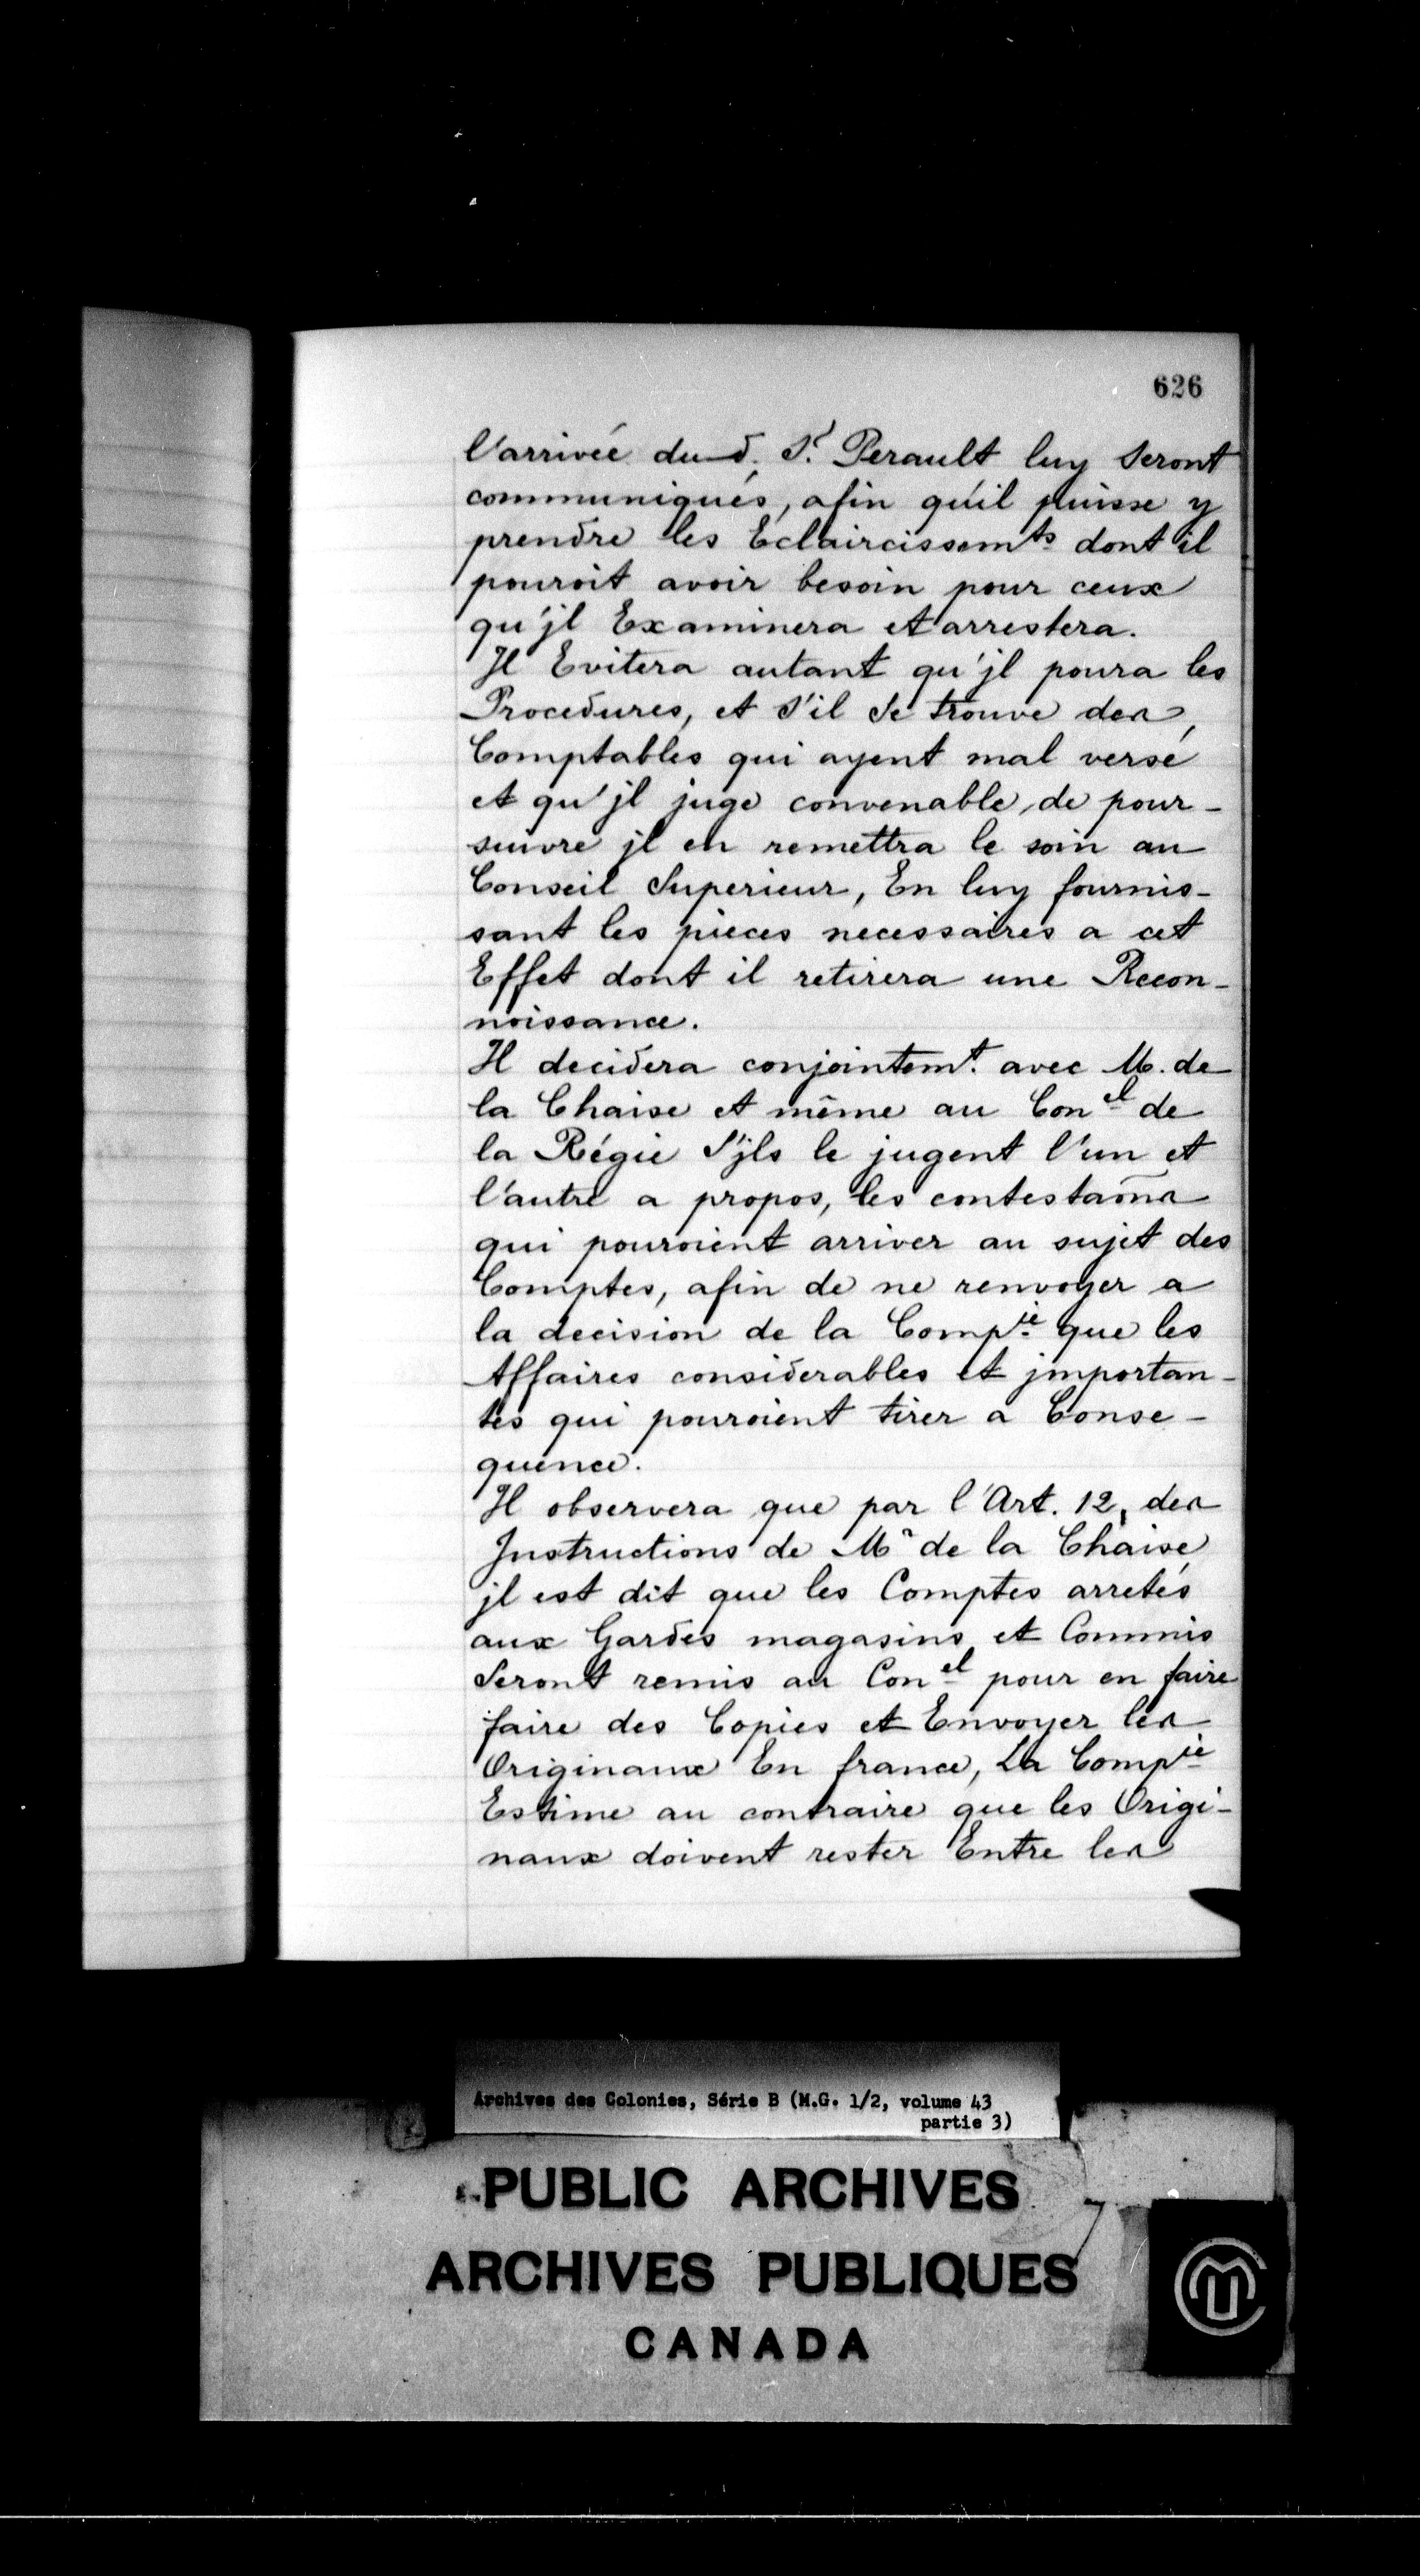 626
l'arrivée du d. Sr. Perault luy seront
communiqués, afin qu'il puisse y
prendre les Eclaircissemts dont il
pouroit avoir besoin pour ceux
qu'jl Examinera et arrestera.
Il Evitera autant qu'jl poura les
Procedures, et s'il se trouve des
Comptables qui ayent mal versé
et qu'jl juge convenable de pour-
suivre jl en remettra le soin au
Conseil Superieur, En luy fournis-
sant les pieces necessaires a cet
Effet dont il retirera une Recon-
noissance.
Il decidera conjointemt. avec M. de
la Chaise et même au Conel de
la Régie s'jls le jugent l'un et
l'autre a propos, les contestaõns
qui pouroient arriver au sujet des
Comptes, afin de ne renvoyer a
la decision de la Compie que les
Affaires considerables et jmportan-
tes qui pouroient tirer a Conse-
quence.
Il observera que par l'Art. 12, des
Jnstructions de Mr de la Chaise
jl est dit que les Comptes arretés
aux Gardes magasins et Commis
seront remis au Conel pour en faire
faire des Copies et Envoyer les
Originaux En france, La Compie
Estime au contraire que les Origi-
naux doivent rester Entre les
Archives des Colonies, Série B (M.G. 1/2, volume 43
partie 3)
PUBLIC ARCHIVES
ARCHIVES PUBLIQUES
CANADA